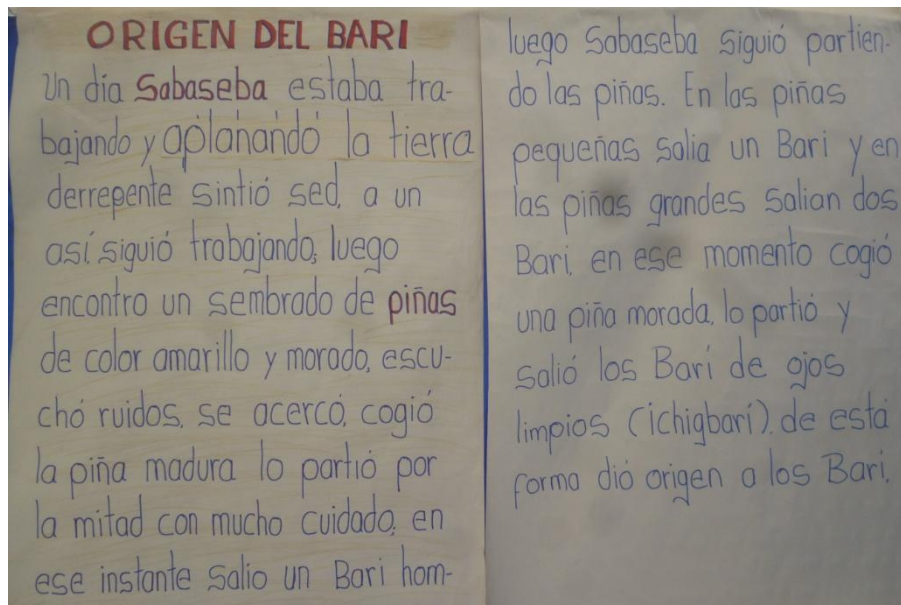 ORIGEN DEL BARI
Un dia Sabaseba estaba tra-
bajando y aplanando la tierra
derrepente sintió sed, a un
así siguió trabajando, luego
encontro un sembrado de piñas
de color amarillo y morado, escu-
chó ruidos, se acercó, cogió
la piña madura lo partió por
la mitad con mucho cuidado, en
ese instante salio un Bari hom-
luego Sabaseba siguió partien-
do las piñas. En las piñas
pequeñas salia un Bari y en
las piñas grandes salian dos
Bari, en ese momento cogió
una piña morada, lo partió y
salió los Bari de ojos
limpios (ichigbarí). de está
forma dió origen a los Bari.